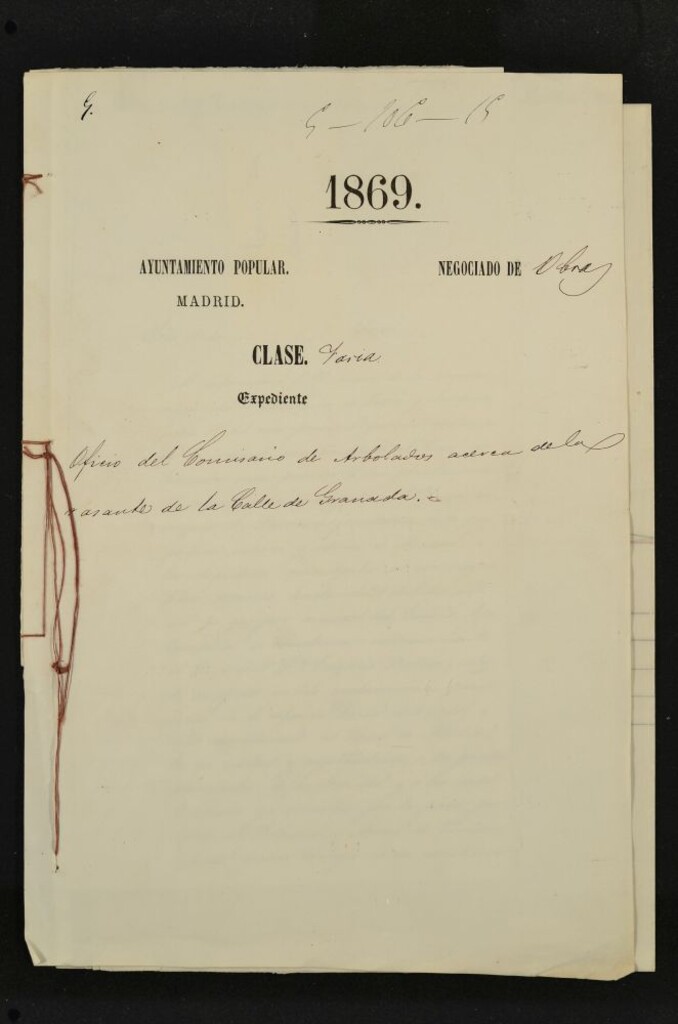 G.
5 - 106 - 15
1869.
AYUNTAMIENTO POPULAR.
NEGOCIADO DE Obras
MADRID.
CLASE. Varia
Expediente
Oficio del Comisario de Arbolados acerca de la
rasante de la Calle de Granada. =